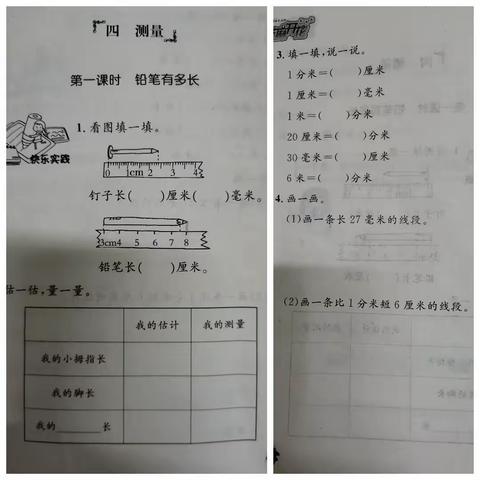 四 测量
第一课时 铅笔有多长
快乐实践
1. 看图填一填。
0 1cm 2 3 4
钉子长( )厘米( )毫米。
3cm4 5 6 7 8
铅笔长( )厘米。
估一估,量一量。
我的估计 我的测量
我的小拇指长
我的脚长
我的______长
3. 填一填,说一说。
1分米=( )厘米
1厘米=( )毫米
1米=( )分米
20厘米=( )分米
30毫米=( )厘米
6米=( )分米
4. 画一画。
(1)画一条长27毫米的线段。
(2)画一条比1分米短6厘米的线段。